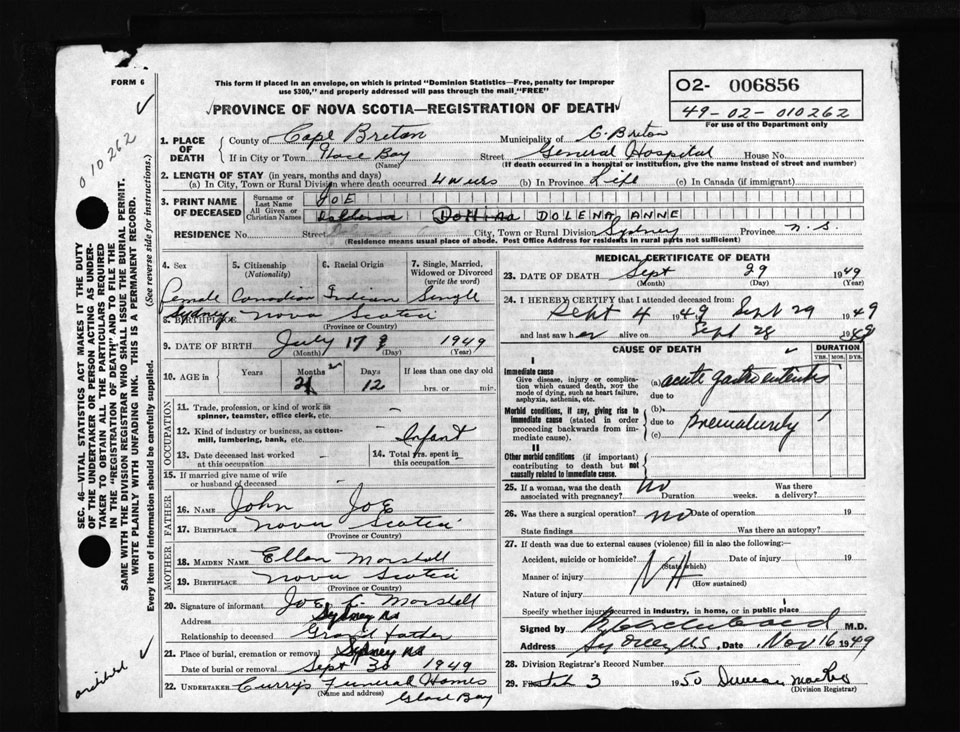 FORM 6
This form if placed in an envelope, on which is printed "Dominion Statistics—Free, penalty for improper
use $300," and properly addressed will pass through the mail "FREE"
PROVINCE OF NOVA SCOTIA—REGISTRATION OF DEATH
02- 006856
49-02-010262
For use of the Department only
010262
SEC. 46—VITAL STATISTICS ACT MAKES IT THE DUTY
OF THE UNDERTAKER OR PERSON ACTING AS UNDER-
TAKER TO OBTAIN ALL THE PARTICULARS REQUIRED
IN THE "REGISTRATION OF DEATH" AND TO FILE THE
SAME WITH THE DIVISION REGISTRAR WHO SHALL ISSUE THE BURIAL PERMIT.
WRITE PLAINLY WITH UNFADING INK. THIS IS A PERMANENT RECORD.
Every item of information should be carefully supplied. (See reverse side for instructions.)
1. PLACE OF DEATH
County of Cape Breton Municipality of C. Breton
If in City or Town Glace Bay Street General Hospital House No.
(Name) (If death occurred in a hospital or institution, give the name instead of street and number)
2. LENGTH OF STAY (in years, months and days)
(a) In City, Town or Rural Division where death occurred 4 (b) In Province Life (c) In Canada (if immigrant)
3. PRINT NAME OF DECEASED
Surname or Last Name JOE
All Given or Christian Names DOLENA ANNE
RESIDENCE No. Street City, Town or Rural Division Sydney Province N.S.
(Residence means usual place of abode. Post Office Address for residents in rural parts not sufficient)
4. Sex 5. Citizenship (Nationality) 6. Racial Origin 7. Single, Married, Widowed or Divorced (write the word)
Female Canadian Indian Single
8. BIRTHPLACE Sydney Nova Scotia
(Province or Country)
9. DATE OF BIRTH July 17 1949
(Month) (Day) (Year)
10. AGE in Years Months Days If less than one day old
2 12 hrs. or min.
OCCUPATION
11. Trade, profession, or kind of work as
spinner, teamster, office clerk, etc. -
12. Kind of industry or business, as cotton-
mill, lumbering, bank, etc. Infant
13. Date deceased last worked at this occupation - 14. Total yrs. spent in this occupation -
15. If married give name of wife
or husband of deceased
FATHER
16. NAME John Joe
17. BIRTHPLACE Nova Scotia
(Province or Country)
MOTHER
18. MAIDEN NAME Ellen Morshell
19. BIRTHPLACE Nova Scotia
(Province or Country)
20. Signature of informant Joe C. Morshell
Address Sydney NS
Relationship to deceased Grand father
21. Place of burial, cremation or removal Sydney NS
Date of burial or removal Sept 30 1949
22. UNDERTAKER Curry's Funeral Homes
(Name and address)
Glace Bay
MEDICAL CERTIFICATE OF DEATH
23. DATE OF DEATH Sept 29 1949
(Month) (Day) (Year)
24. I HEREBY CERTIFY that I attended deceased from:
Sept 4 1949 Sept 29 1949
and last saw her alive on Sept 28 1949
CAUSE OF DEATH DURATION
YRS. MOS. DYS.
I
Immediate cause
Give disease, injury or complica-
tion which caused death, NOT the
mode of dying, such as heart failure,
asphyxia, asthenia, etc.
(a) acute gastro enteritis
due to
Morbid conditions, if any, giving rise to
immediate cause (stated in order
proceeding backwards from im-
mediate cause).
(b)
due to Prematurity
(c)
II
Other morbid conditions (if important)
contributing to death but not
causally related to immediate cause.
25. If a woman, was the death associated with pregnancy? No Duration weeks. Was there a delivery?
26. Was there a surgical operation? no Date of operation 19
State findings Was there an autopsy?
27. If death was due to external causes (violence) fill in also the following:—
Accident, suicide or homicide? Date of injury 19
(State which)
Manner of injury
(How sustained)
Nature of injury
Specify whether injury occurred in industry, in home, or in public place
Signed by M.D.
Address Sydney N.S., Date Nov 16 1949
28. Division Registrar's Record Number
29. Filed Feb 3 1950 Duncan
(Division Registrar)